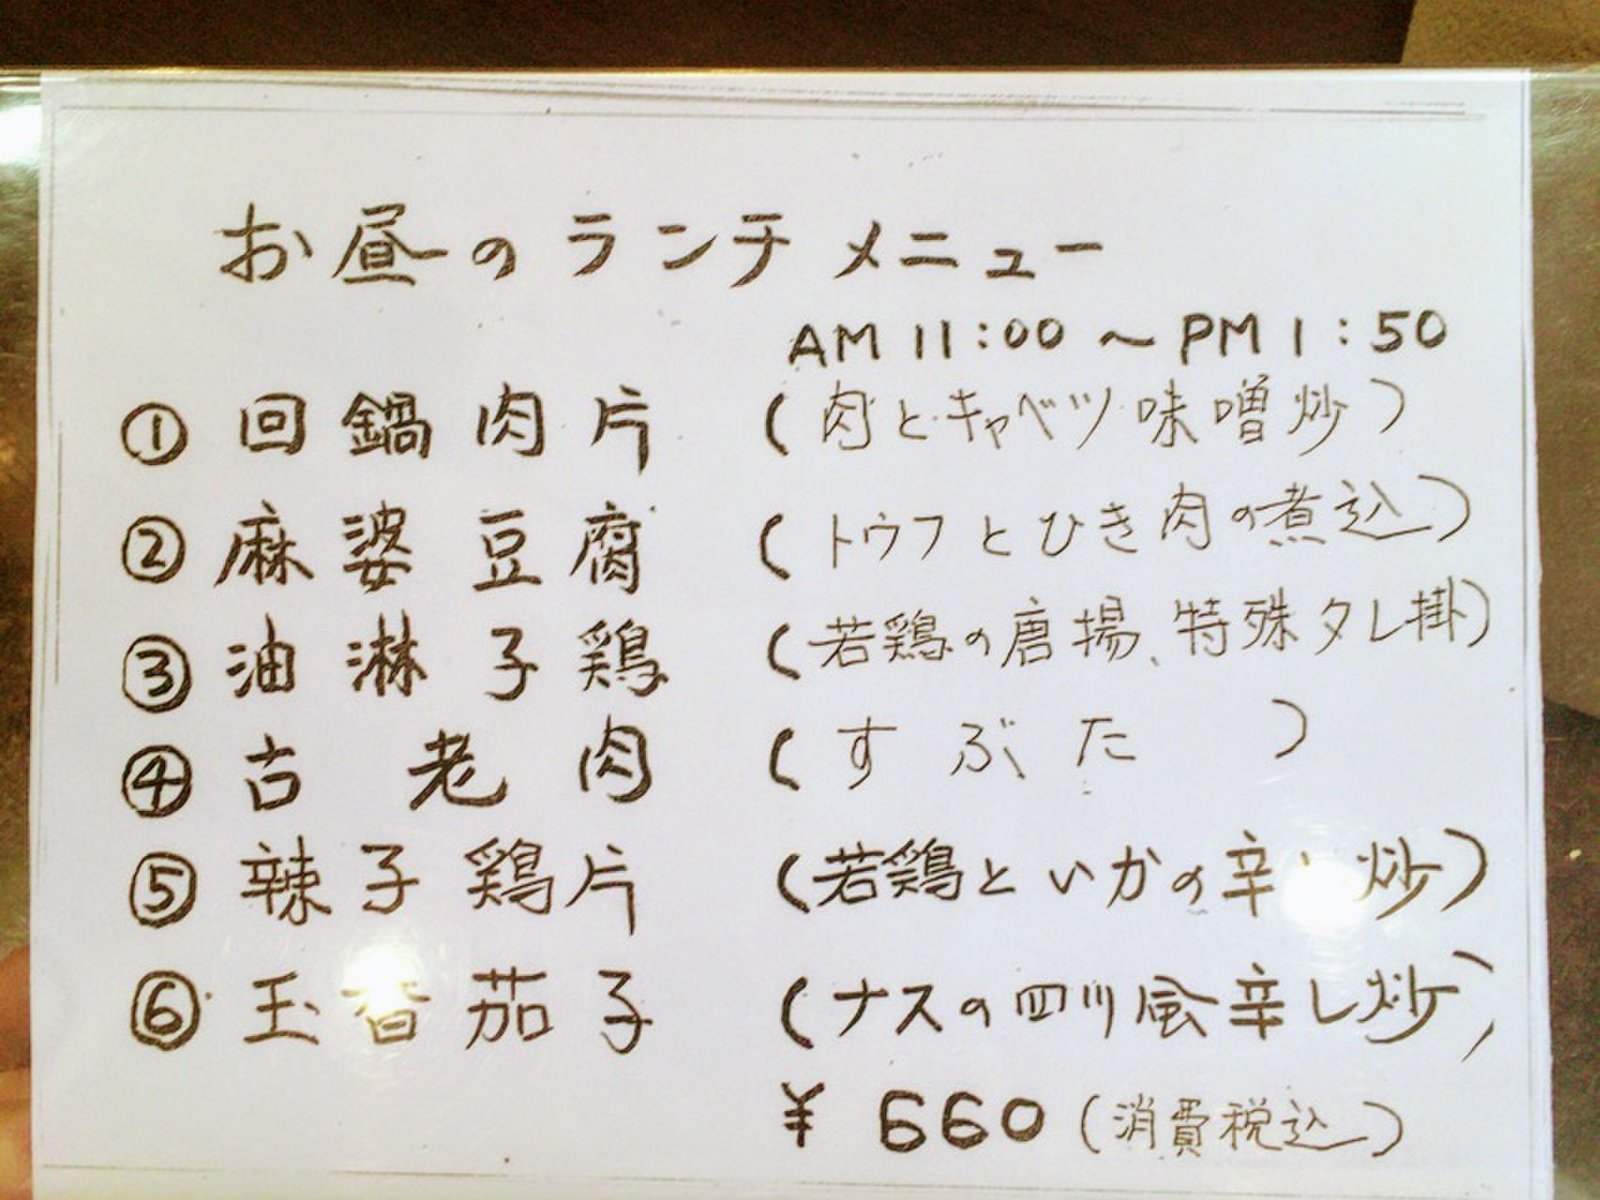 お昼のランチメニュー
AM 11:00 ～ PM 1:50
① 回鍋肉片 (肉とキャベツ味噌炒)
② 麻婆豆腐 (トウフとひき肉の煮込)
③ 油淋子鶏 (若鶏の唐揚、特殊タレ掛)
④ 古老肉 (すぶた)
⑤ 辣子鶏片 (若鶏といかの辛し炒)
⑥ 玉香茄子 (ナスの四川風辛し炒)
¥660 (消費税込)